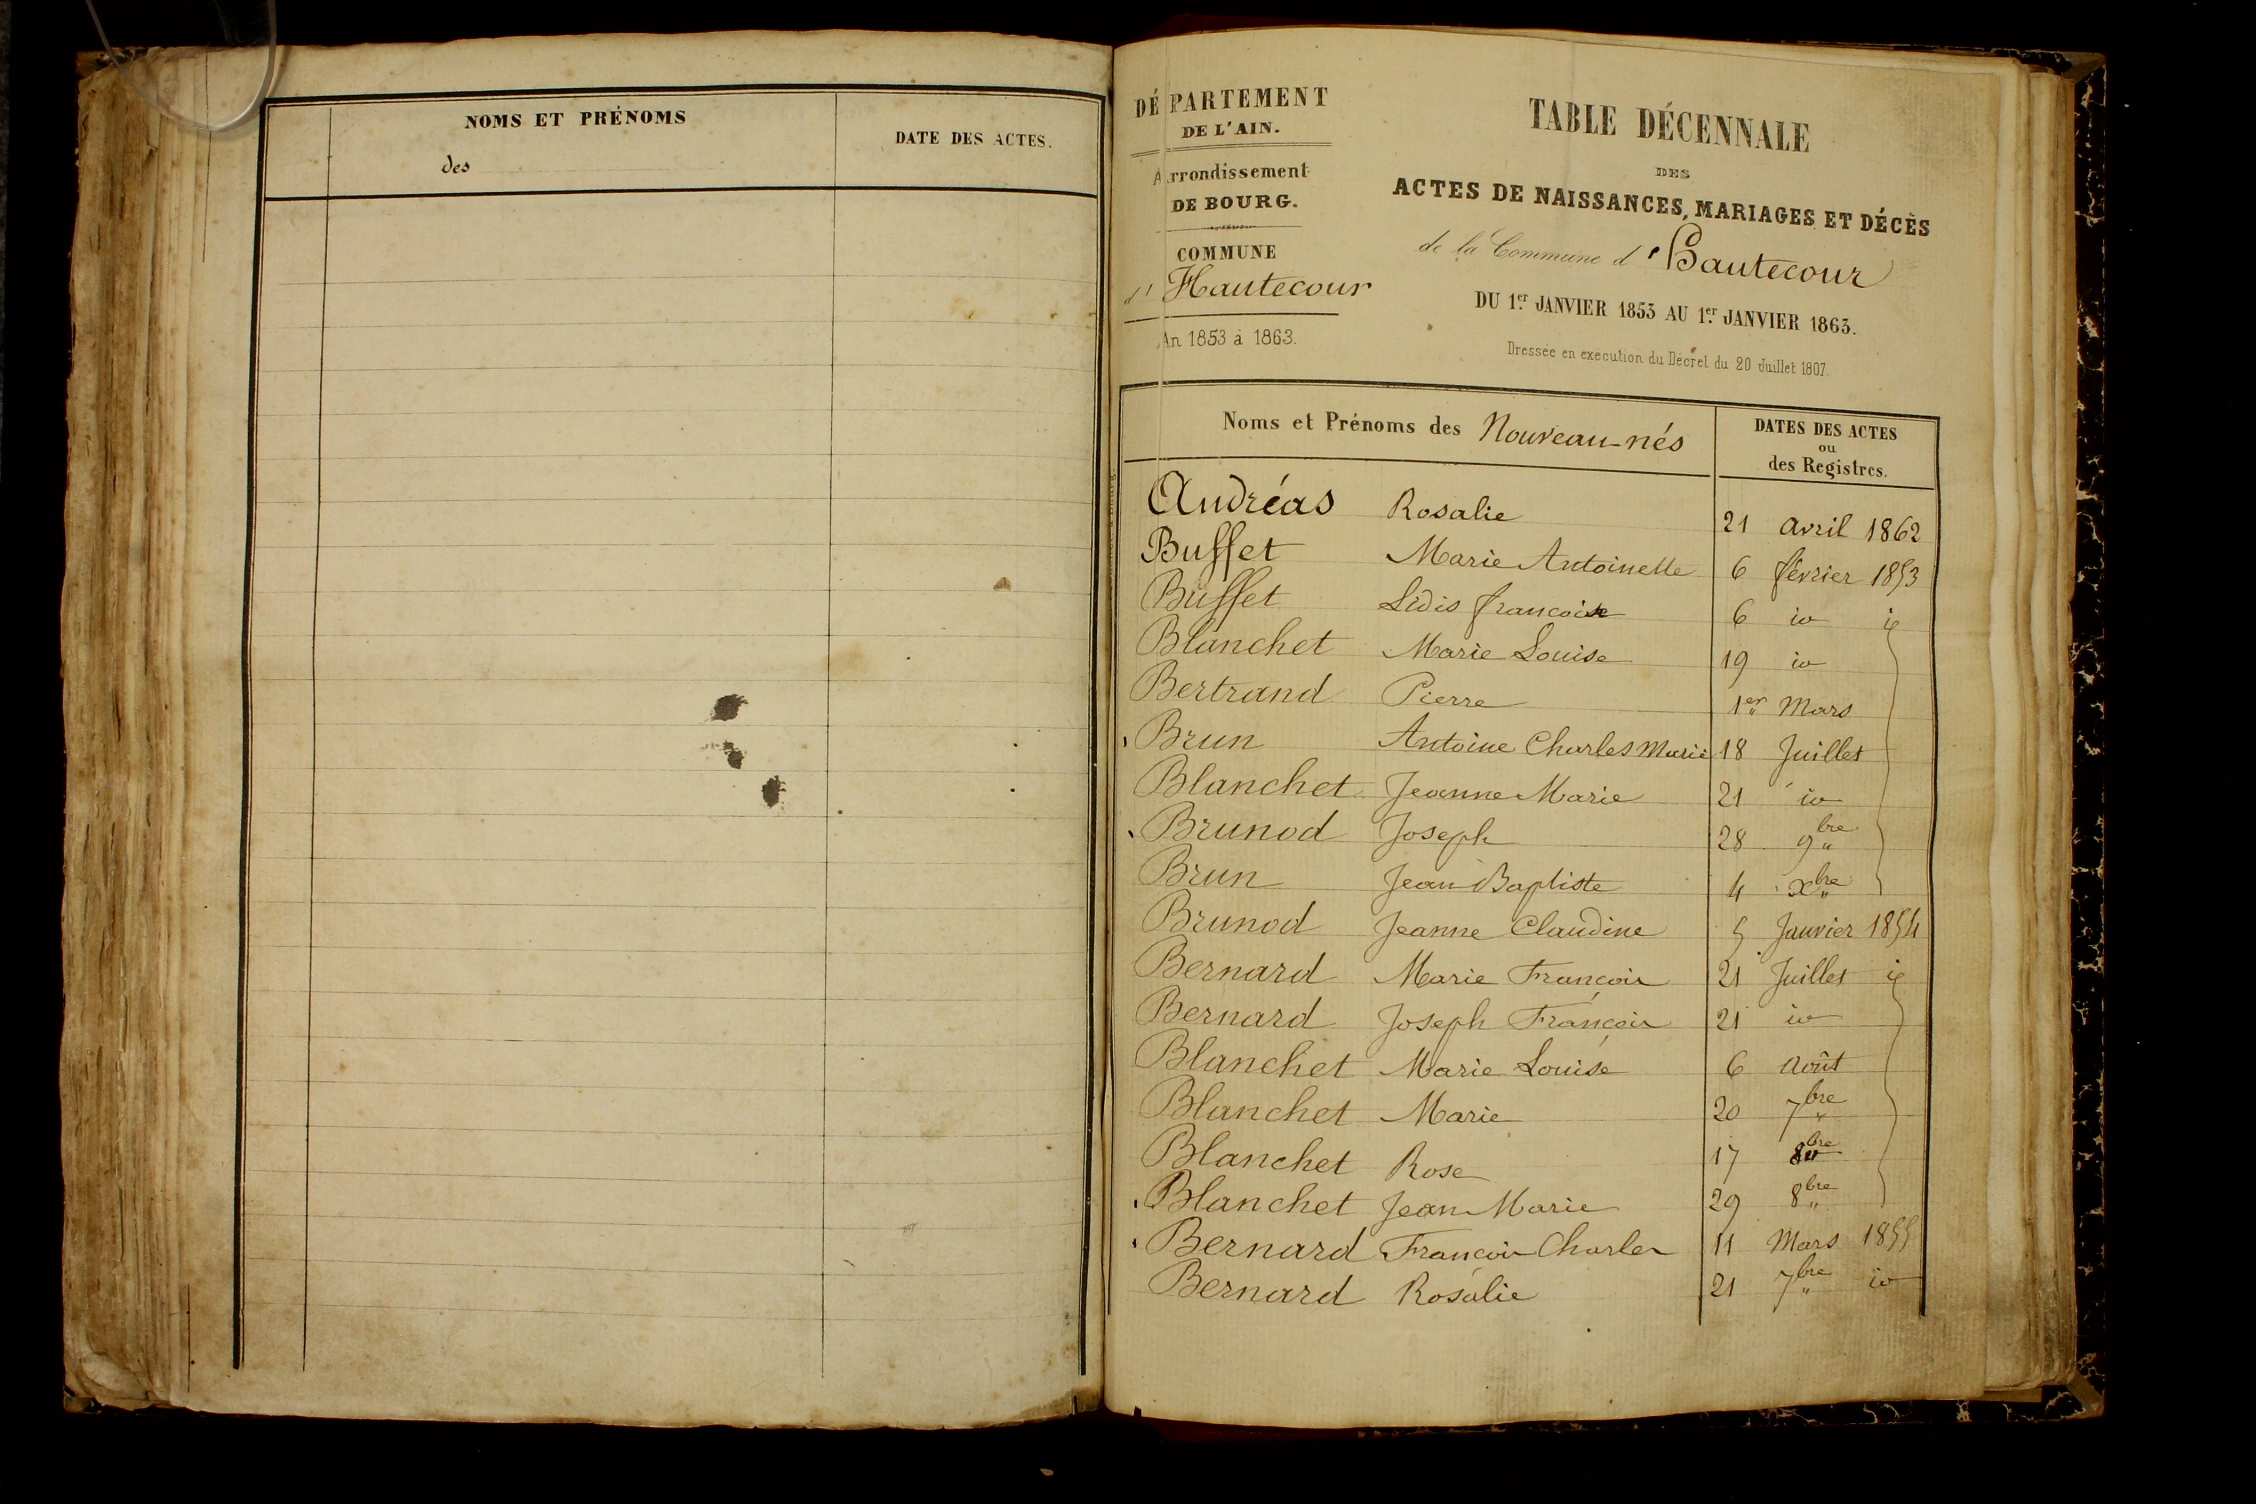 NOMS ET PRÉNOMS
des
DATE DES ACTES.
DÉPARTEMENT
DE L'AIN.
Arrondissement
DE BOURG.
COMMUNE
d' Hautecour
An 1853 à 1863.
TABLE DÉCENNALE
DES
ACTES DE NAISSANCES, MARIAGES ET DÉCÈS
de la Commune d' Hautecour
DU 1er JANVIER 1853 AU 1er JANVIER 1863.
Dressée en exécution du Décret du 20 Juillet 1807.
Noms et Prénoms des Nouveau-nés
DATES DES ACTES
ou
des Registres.
Andréas Rosalie 21 avril 1862
Buffet Marie Antoinette 6 février 1853
Buffet françoise 6 id id
Blanchet Marie Louise 19 id
Bertrand Pierre 1er Mars
Brun Antoine Charles Marie 18 Juillet
Blanchet Jeanne Marie 21 id
Brunod Joseph 28 9bre
Brun Jean Baptiste 4 Xbre
Brunod Jeanne Claudine 5 Janvier 1854
Bernard Marie François 21 Juillet id
Bernard Joseph François 21 id
Blanchet Marie Louise 6 Août
Blanchet Marie 20 7bre
Blanchet Rose 17 8bre
Blanchet Jean Marie 29 8bre
Bernard François Charles 11 Mars 1855
Bernard Rosalie 21 7bre id